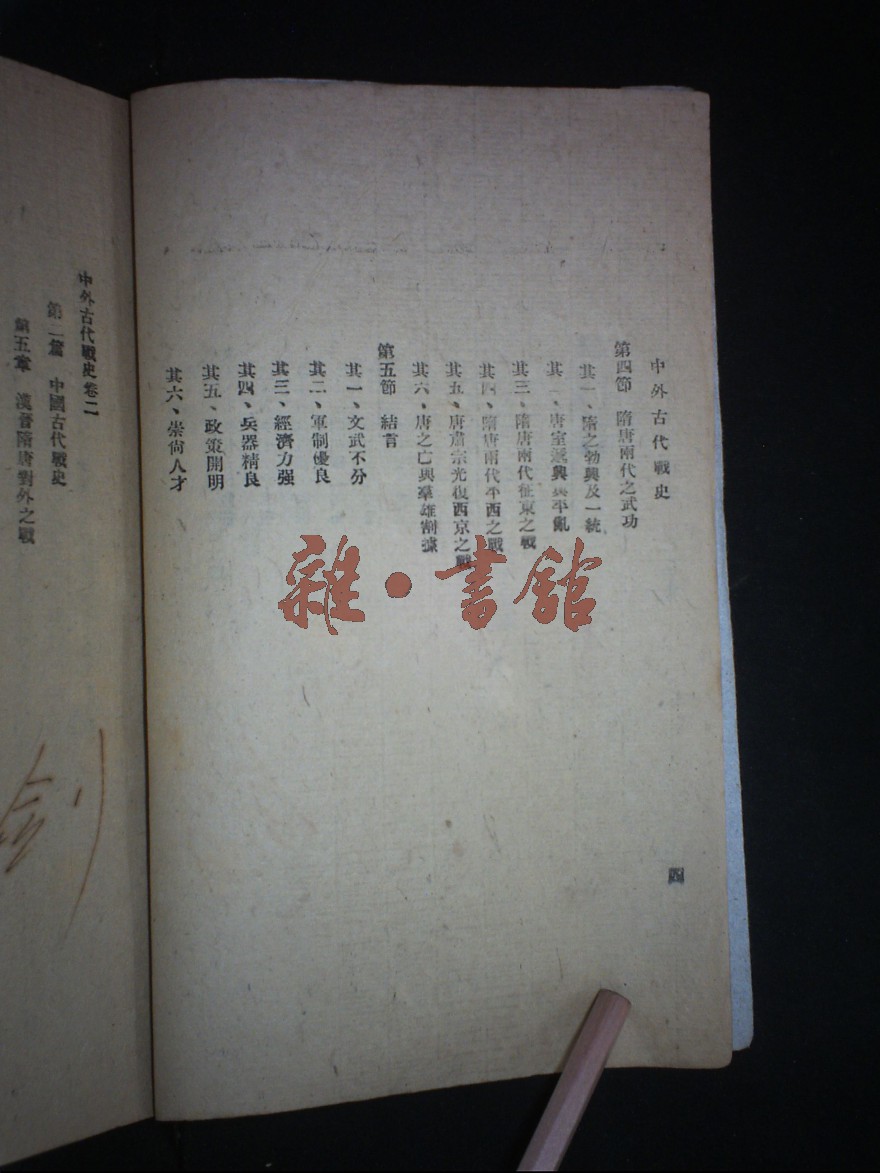 中外古代戰史
第四節 隋唐兩代之武功
其一、隋之勃興及一統
其二、唐室遞興與平亂
其三、隋唐兩代征東之戰
其四、隋唐兩代平西之戰
其五、唐肅宗光復西京之戰
其六、唐之亡與羣雄割據
第五節 結言
其一、文武不分
其二、軍制優良
其三、經濟力强
其四、兵器精良
其五、政策開明
其六、崇尚人才
四
雜·書館
中外古代戰史卷二
第二篇 中國古代戰史
第五章 漢晉隋唐對外之戰
劍